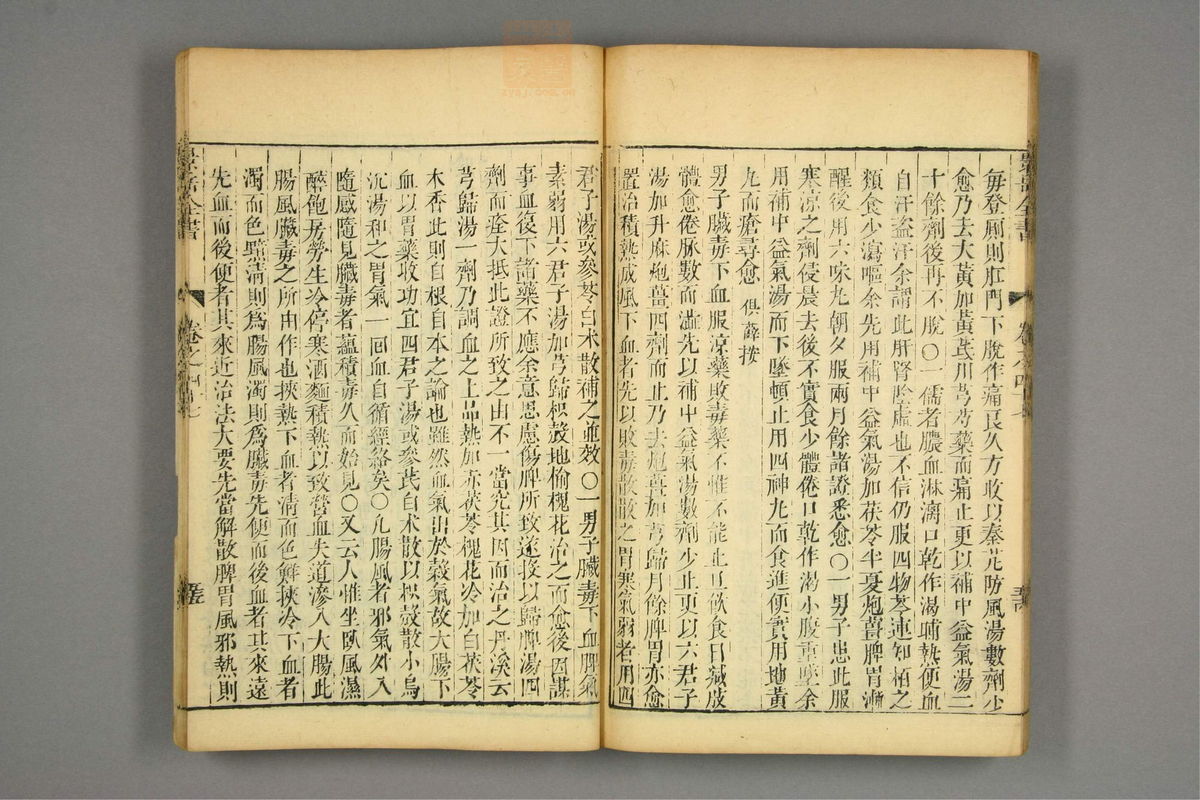 每登厠則肛門下脫作痛良久方收以秦艽防風湯數劑少
愈乃去大黃加黃芪川芎芍藥而痛止更以補中益氣湯二
十餘劑後再不脫〇一儒者膿血淋漓口乾作渴晡熱便血
自汗盜汗余謂此肝腎陰虛也不信仍服四物芩連知柏之
類食少瀉嘔余先用補中益氣湯加茯苓半夏炮薑脾胃漸
醒後用六味丸朝夕服兩月餘諸證悉愈〇一男子患此服
寒涼之劑侵晨去後不實食少體倦口乾作渴小腹重墜余
用補中益氣湯而下墜頓止用四神丸而食進便實用地黃
丸而瘡尋愈 俱薛按
男子臟毒下血服涼藥敗毒藥不惟不能止且飲食日減肢
體愈倦脉數而濇先以補中益氣湯數劑少止更以六君子
湯加升麻炮薑四劑而止乃去炮薑加芎歸月餘脾胃亦愈
嘗治積熱成風下血者先以敗毒散散之胃寒氣弱者用四
君子湯或參苓白朮散補之並效〇一男子臟毒下血脾氣
素弱用六君子湯加芎歸枳殼地愉槐花治之而愈後因謀
事血復下諸藥不應余意思慮傷脾所致遂投以歸脾湯四
劑而痊大抵此證所致之由不一當究其因而治之丹溪云
芎歸湯一劑乃調血之上品熱加赤茯苓槐花冷加白茯苓
木香此則自根自本之論也雖然血氣出於穀氣故大腸下
血以胃藥收功宜四君子湯或參芪白朮散以枳殼散小烏
沉湯和之胃氣一囘血自循經絡矣〇凡腸風者邪氣外入
隨感隨見臟毒者蘊積毒久而始見〇又云人惟坐臥風濕
醉飽房勞生冷停寒酒麵積熱以致營血失道滲入大腸此
腸風臟毒之所由作也挾熱下血者淸而色鮮挾冷下血者
濁而色黯淸則爲腸風濁則爲臟毒先便而後血者其來遠
先血而後便者其來近治法大要先當解散脾胃風邪熱則